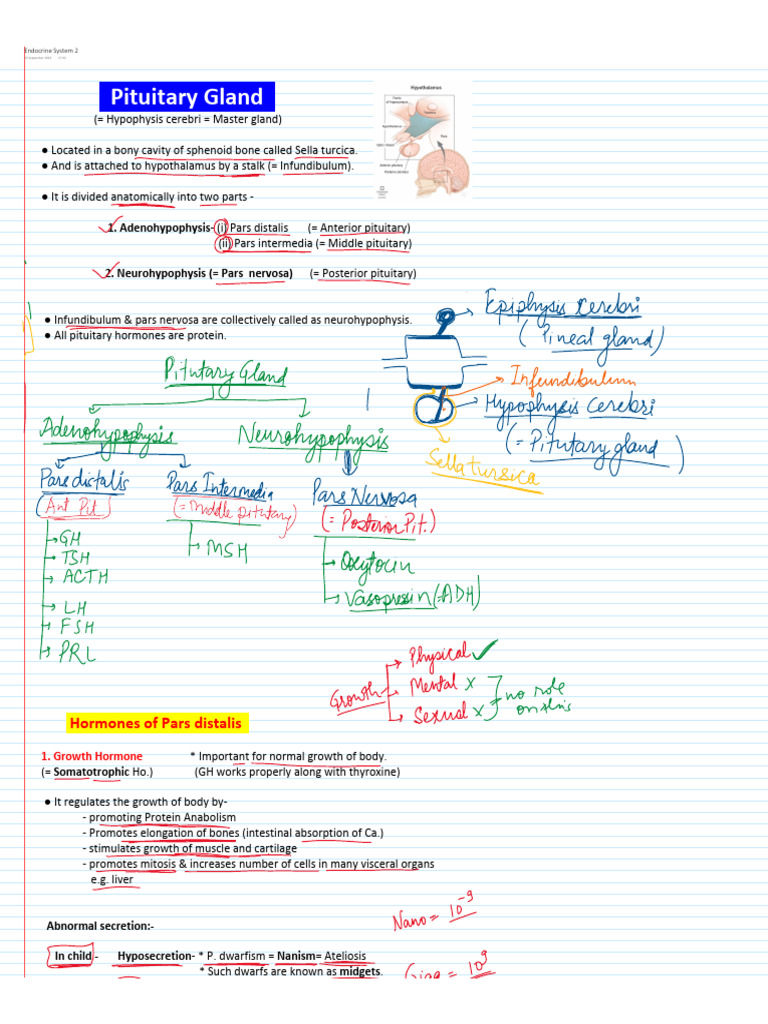 Endocrine System 2
Pituitary Gland
(= Hypophysis cerebri = Master gland)
Hypothalamus
● Located in a bony cavity of sphenoid bone called Sella turcica.
● And is attached to hypothalamus by a stalk (= Infundibulum).
● It is divided anatomically into two parts -
1. Adenohypophysis- (i) Pars distalis (= Anterior pituitary)
(ii) Pars intermedia (= Middle pituitary)
2. Neurohypophysis (= Pars nervosa) (= Posterior pituitary)
● Infundibulum & pars nervosa are collectively called as neurohypophysis.
● All pituitary hormones are protein.
Epiphysis Cerebri
(Pineal gland)
Infundibulum
Hypophysis Cerebri
(= Pitutary gland)
Sella tursica
Pitutary Gland
Adenohypophysis
Neurohypophysis
Pars distalis
(Ant Pit)
GH
TSH
ACTH
LH
FSH
PRL
Pars Intermedia
(= Middle pitutary)
MSH
Pars Nervosa
(= Posterior Pit.)
Oxytocin
Vasopressin (=ADH)
Growth
Physical ✓
Mental x
Sexual x
no role
on this
Hormones of Pars distalis
1. Growth Hormone * Important for normal growth of body.
(= Somatotrophic Ho.) (GH works properly along with thyroxine)
● It regulates the growth of body by-
- promoting Protein Anabolism
- Promotes elongation of bones (intestinal absorption of Ca.)
- stimulates growth of muscle and cartilage
- promotes mitosis & increases number of cells in many visceral organs
e.g. liver
Nano = 10⁻⁹
Abnormal secretion:-
In child - Hyposecretion- * P. dwarfism = Nanism= Ateliosis
* Such dwarfs are known as midgets.
Giga = 10⁹